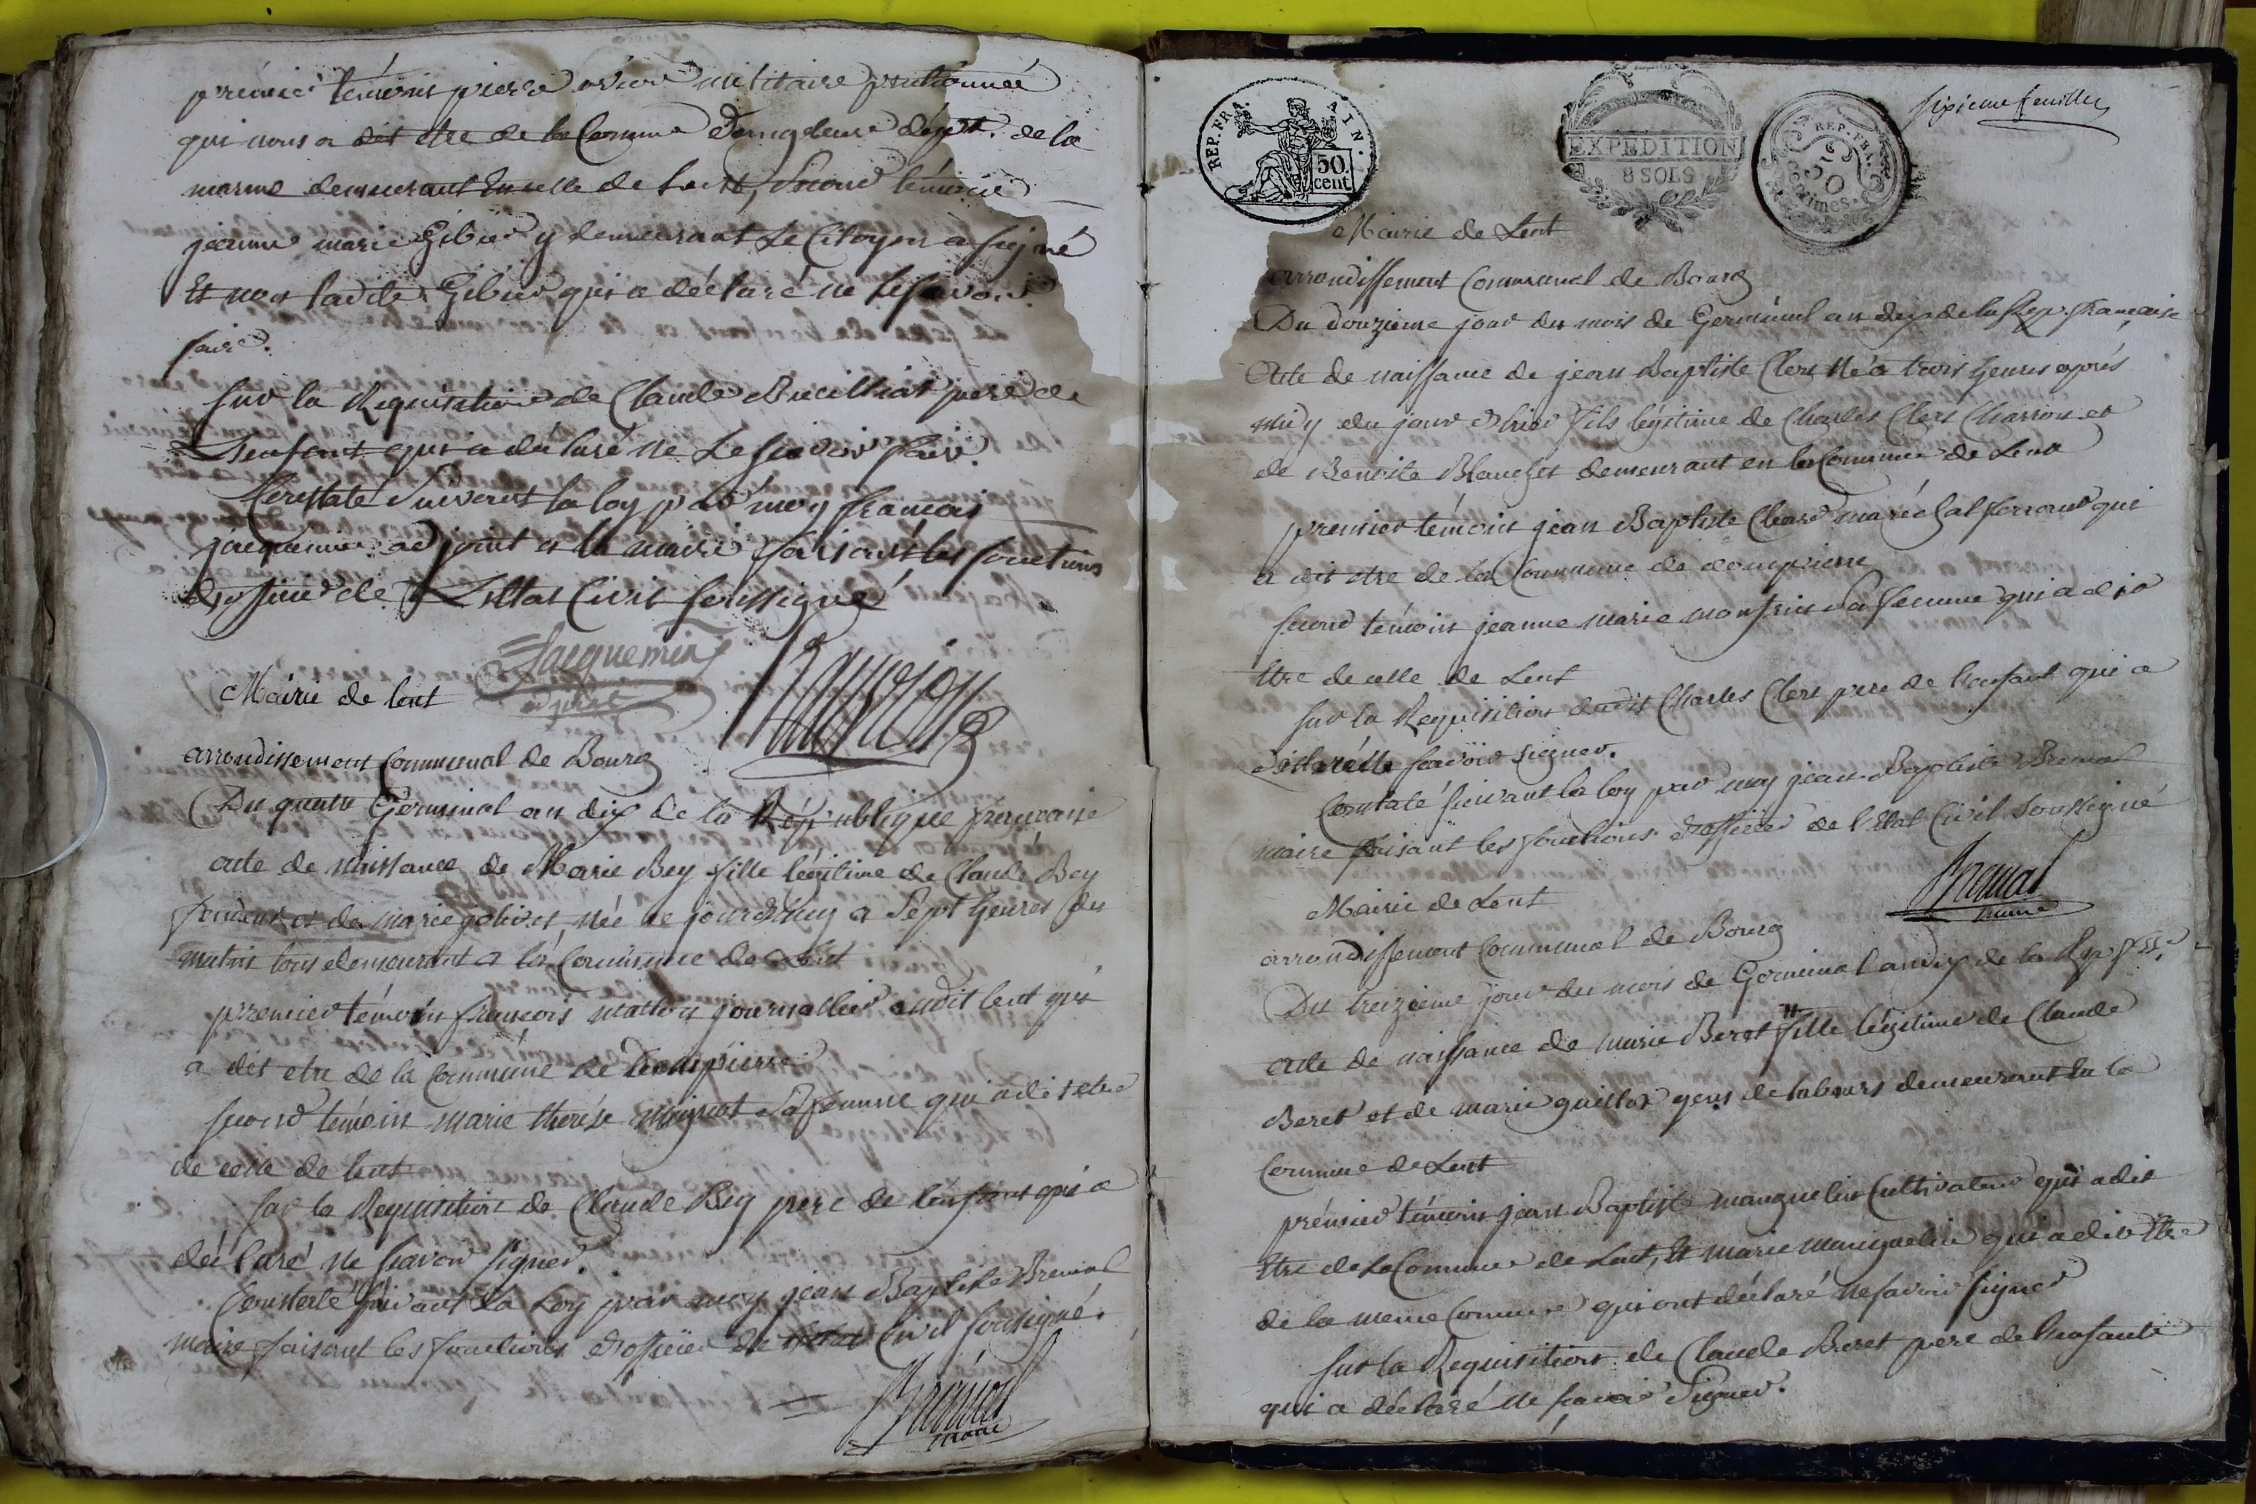 premier témoin pierre militaire pentionné
qui nous a dit etre de la Commune dept. de la
marne demeurant en celle de Lent, second témoin
jeanne marie Gibier y demeurant Le Citoyen a signé
Et non ladite Gibier qui a déclaré ne le savoir
faire.
sur la Requisition de Claude pere de
L'enfant qui a déclaré ne le scavoir faire
Constaté suivant la loy par moy francois
jacquemin adjoint a la mairie faisant les fonctions
d'officier de L'Ettat Civil soussigné
Jacquemin
adjoint
Mairie de lent
arrondissement Communal de Bourg
Du quatre Germinal an dix de la République francaise
acte de naissance de Marie Bey fille légitime de Claude Bey
et de marie née ce jourd'huy a Sept heures du
matin tous demeurant a la Commune de Lent
premier témoin francois journallier audit lent qui
a dit etre de la Commune de Dompierre
second témoin marie therése Sa femme qui a dit etre
de celle de lent
sur la Requisition de Claude Bey pere de l'enfant qui a
déclaré ne scavoir signer.
Constaté suivant la Loy par moy jean Baptiste Breval
maire faisant les fonctions d'officier de l'Etat Civil soussigné.
Breval
maire
REP. FRA. AIN.
50
cent
EXPEDITION
8 SOLS
REP. FRA.
50
centimes
sixieme feuillet
Mairie de Lent
arrondissement Communal de Bourg
Du douzieme jour du mois de Germinal an dix de la Rep. francaise
Acte de naissance de jean Baptiste Clert Né a trois heures aprés
midy du jour d'hier fils légitime de Charles Clert Charron et
de Benoite Blanchet demeurant en la Commune de Lent
premier témoin jean Baptiste maréchal ferrant qui
a dit etre de la Commune de dompierre
second témoin jeanne marie sa femme qui a dit
Etre de celle de Lent
sur la Requisition dudit Charles Clert pere de l'enfant qui a
déclaré ne scavoir signer.
Constaté suivant la loy par moy jean Baptiste Breval
maire faisant les fonctions d'officier de l'Etat Civil Soussigné
Breval
maire
Mairie de Lent
arrondissement Communal de Bourg
Du treizieme jour du mois de Germinal an dix de la Rep.
acte de naissance de marie Beret fille légitime de Claude
Beret et de marie guillot gens de labours demeurant En la
Commune de Lent
premier témoin jean Baptiste manguelin Cultivateur qui a dit
Etre de la Commune de Lent, Et marie manguelin qui a dit Etre
de la meme Commune qui ont déclaré ne savoir signer
sur la Requisition de Claude Beret pere de l'enfant
qui a déclaré ne scavoir Signer.